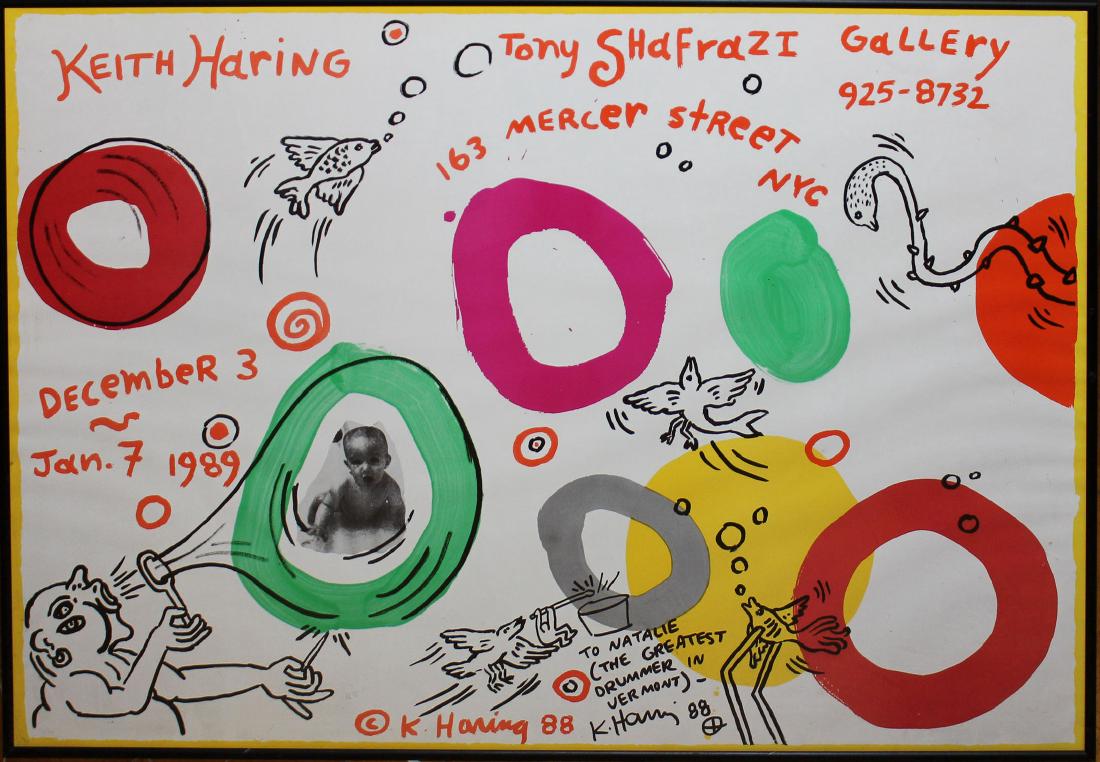 KEITH HARING
Tony SHaFraZI GaLLEry
925-8732
163 MERCer stReet
NYC
DecembeR 3
~
Jan. 7 1989
TO NATALIE
(THE GREATEST
DRUMMER IN
VERMONT) -
K. Haring 88
© K. Haring 88